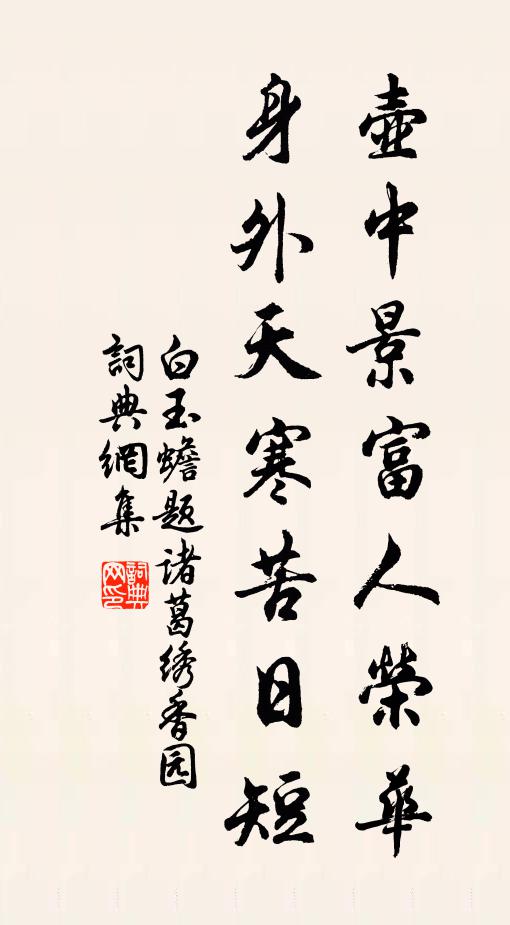 壺中景富人榮華
身外天寒苦日短
白玉蟾题诸葛绣香园
詞典網集
詞典网印